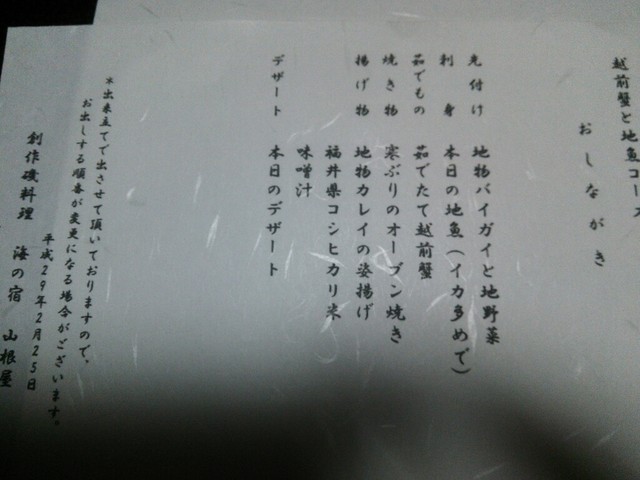 越前蟹と地魚コース
おしながき
先付け 地物バイガイと地野菜
刺身 本日の地魚(イカ多めで)
茹でもの 茹でたて越前蟹
焼き物 寒ぶりのオーブン焼き
揚げ物 地物カレイの姿揚げ
福井県コシヒカリ米
味噌汁
デザート 本日のデザート
*出来立てで出させて頂いておりますので、
お出しする順番が変更になる場合がございます。
平成29年2月25日
創作磯料理 海の宿 山根屋